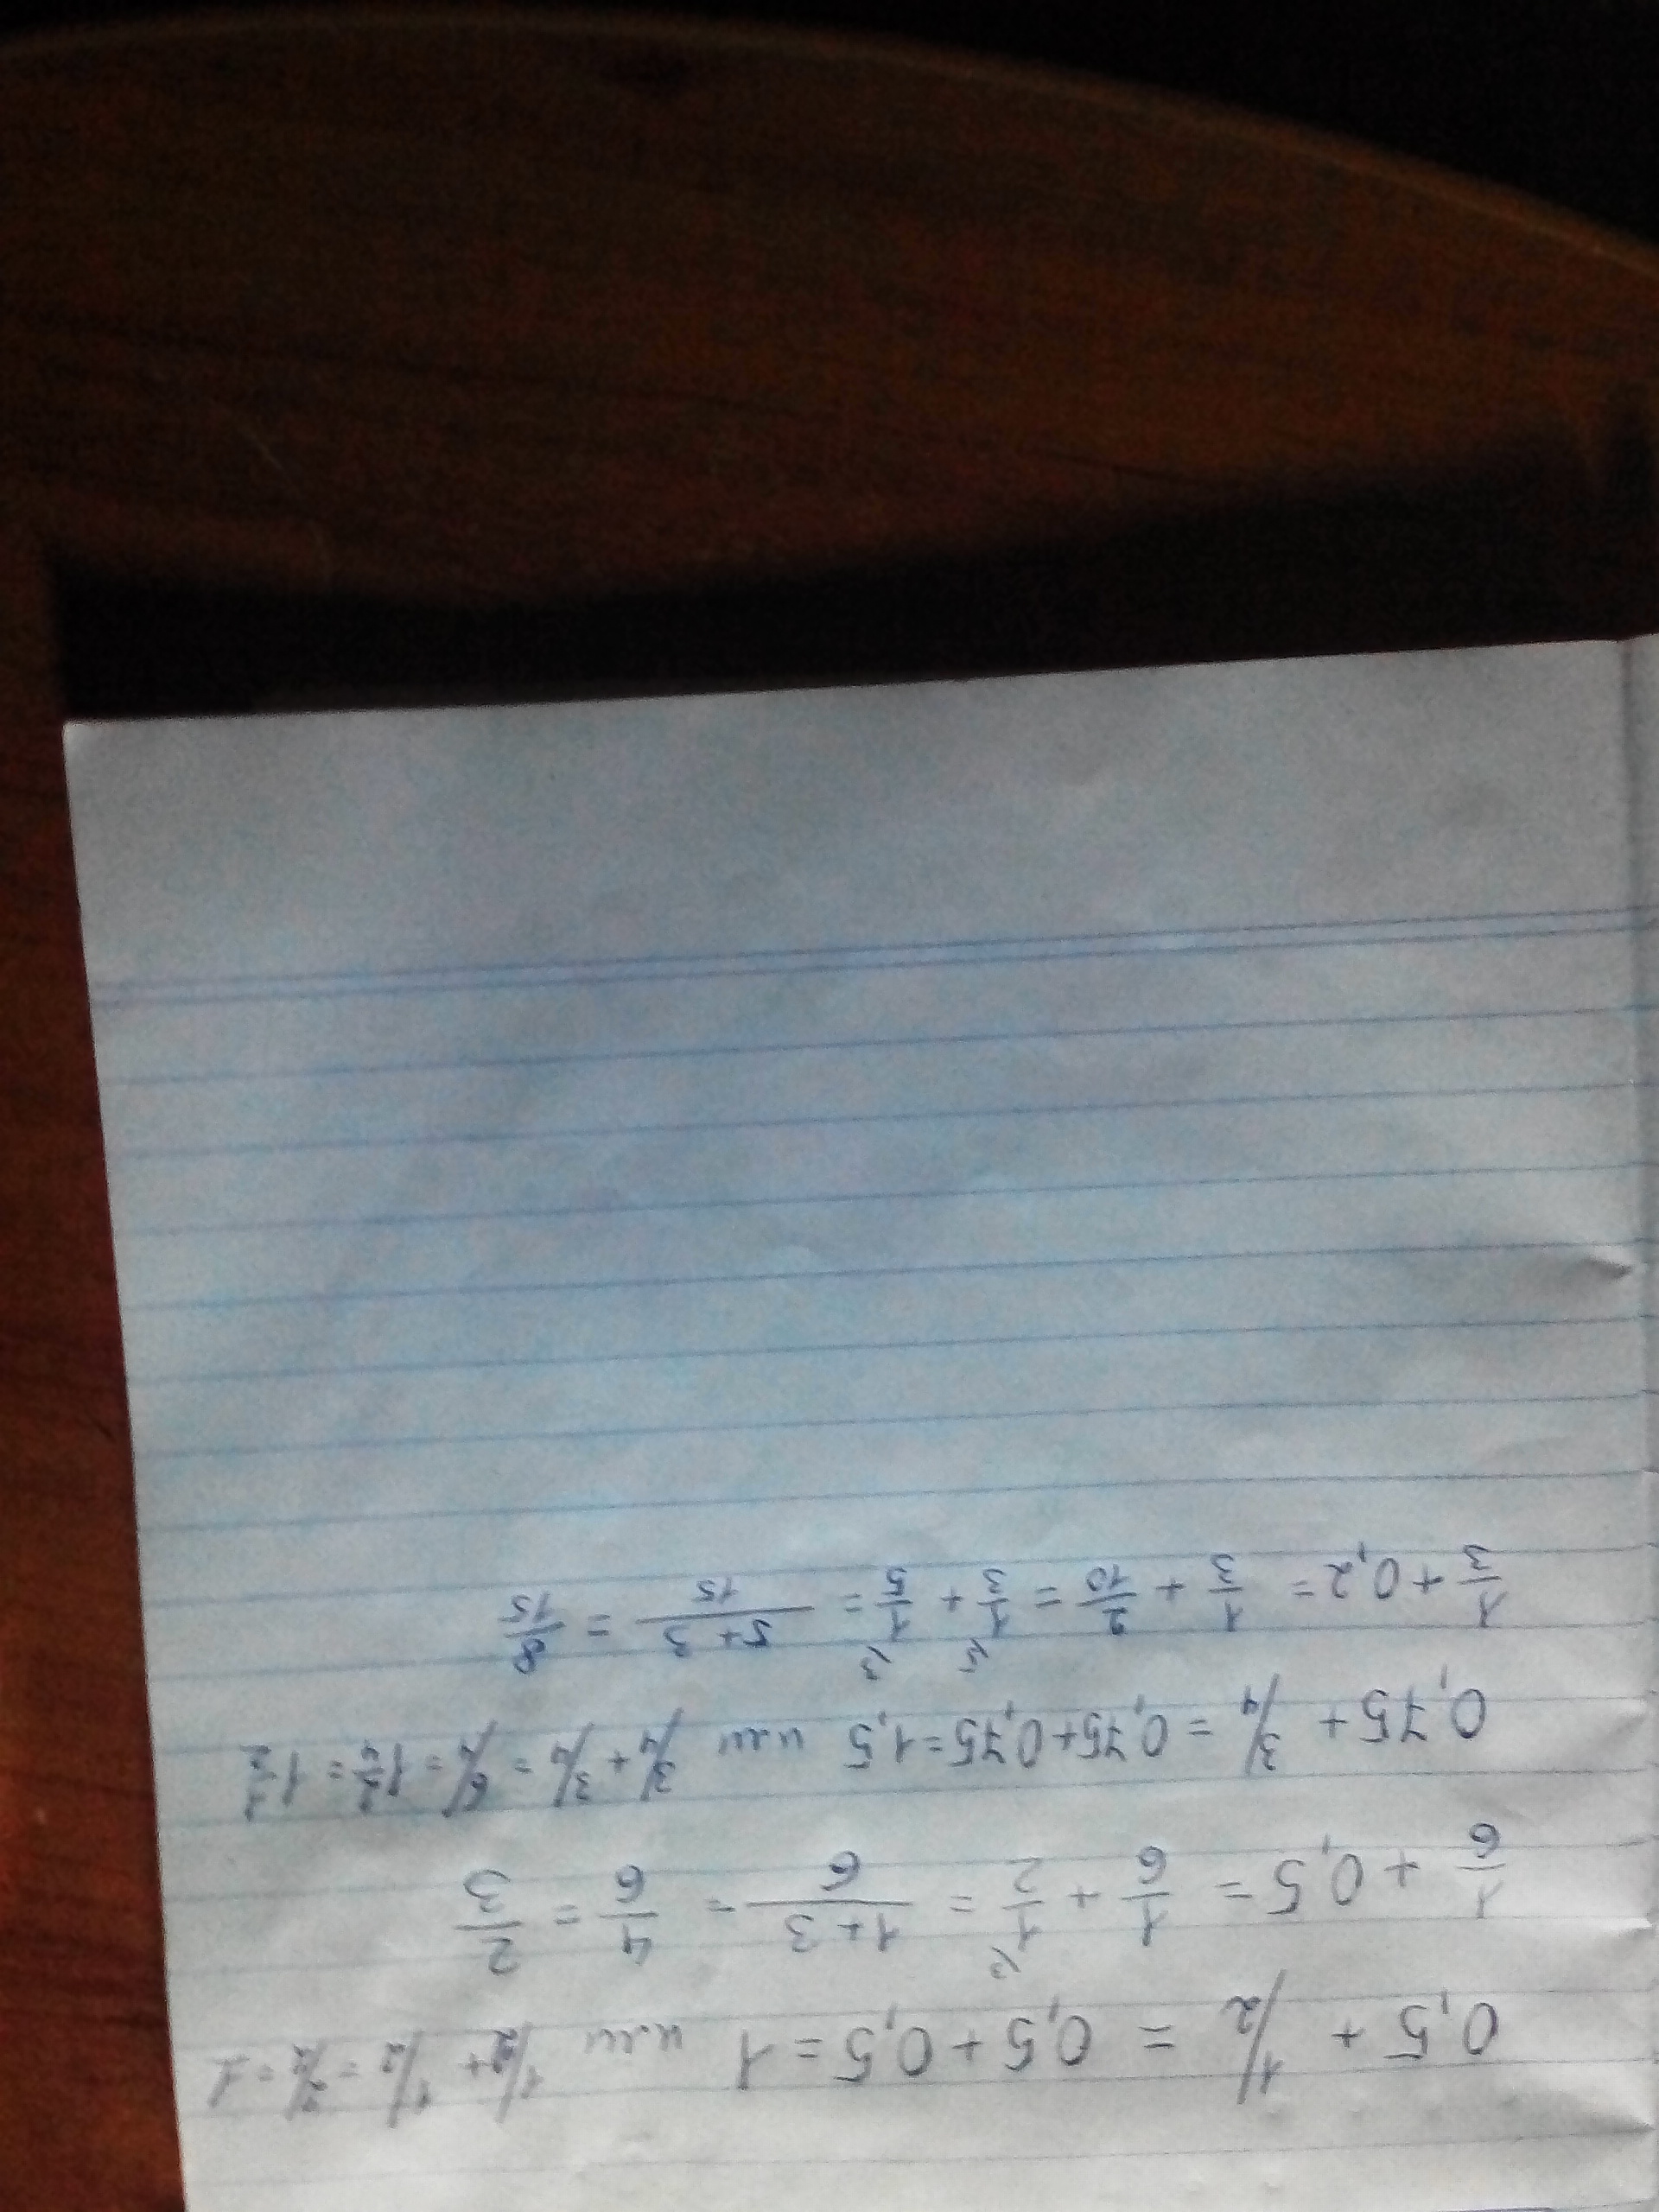 0,5 + 1/2 = 0,5 + 0,5 = 1 или 1/2 + 1/2 = 2/2 = 1
1/6 + 0,5 = 1/6 + 1/2 \3 = (1+3)/6 = 4/6 = 2/3
0,75 + 3/4 = 0,75+0,75=1,5 или 3/4 + 3/4 = 6/4 = 1 2/4 = 1 1/2
1/3 + 0,2 = 1/3 + 2/10 = 1/3 \5 + 1/5 \3 = (5+3)/15 = 8/15